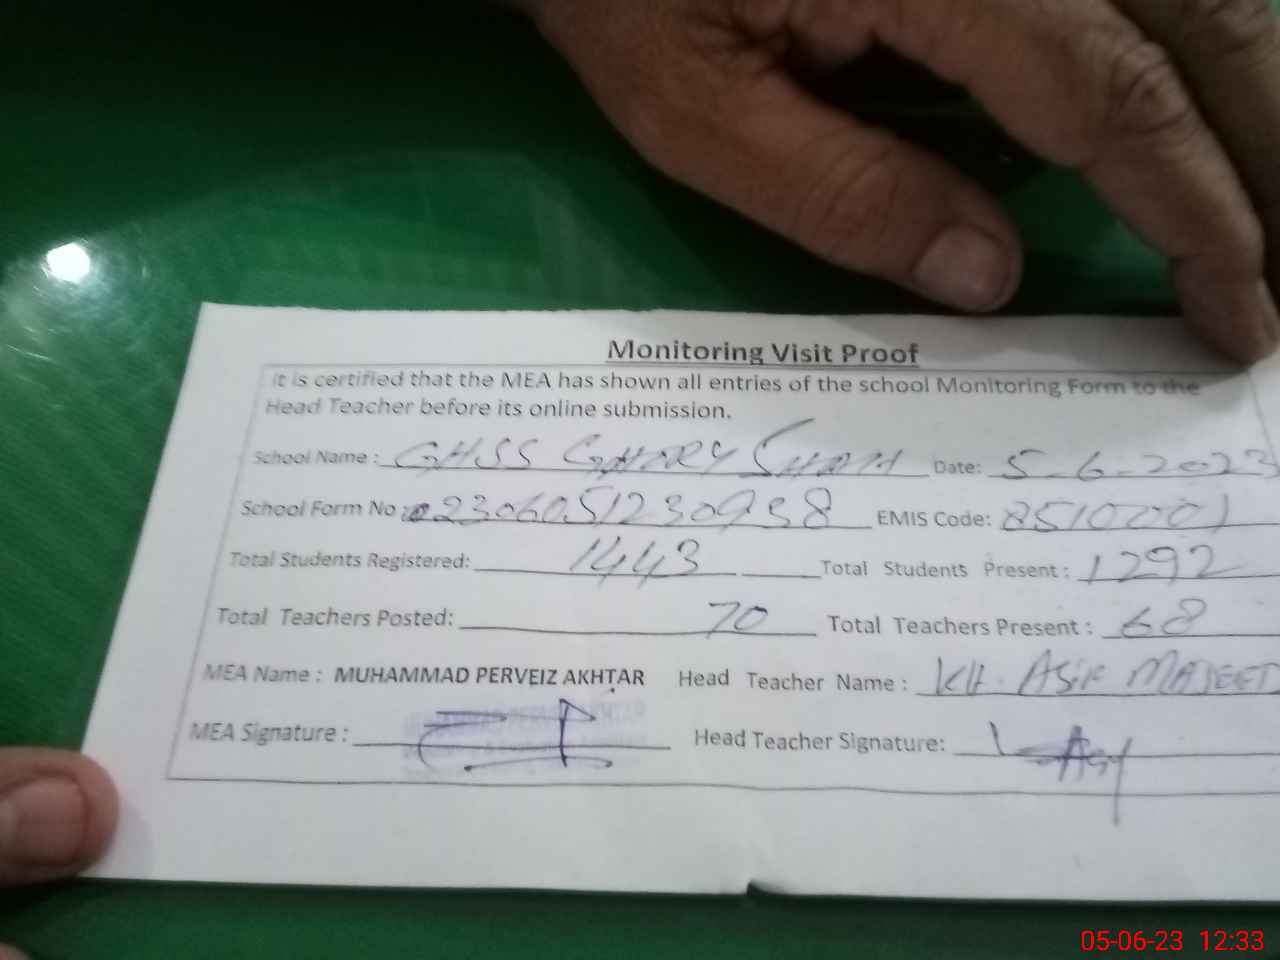 Monitoring Visit Proof
It is certified that the MEA has shown all entries of the school Monitoring Form to the
Head Teacher before its online submission.
School Name : GHSS GHARY SHAH Date: 5-6-2023
School Form No : 0230605123 0938 EMIS Code: 8510001
Total Students Registered: 1443 Total Students Present : 1292
Total Teachers Posted: 70 Total Teachers Present : 68
MEA Name : MUHAMMAD PERVEIZ AKHTAR Head Teacher Name : KH. ASIF MAJEED
MEA Signature : Head Teacher Signature:
05-06-23 12:33